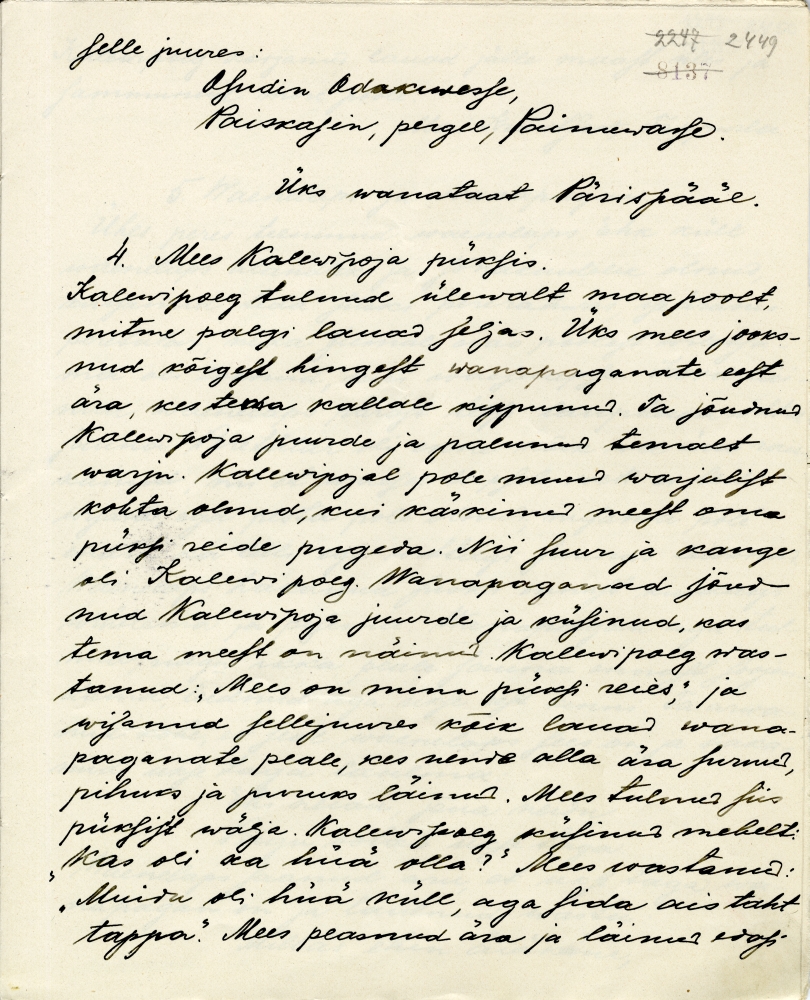 2247 2449
8137
selle juures:
Osudin Odakuwesse,
Paiskasin, pergel, Painuwasse.
Üks wanataat Pärispääl.
4. Mees Kalewipoja püksis.
Kalewipoeg tulnud ülewalt maa poolt,
mitme palgi lauad seljas. Üks mees jooks-
nud kõigest hingest wanapaganate eest
ära, kes tema kallale kippunud. Ta jõudnud
Kalewipoja juurde ja palunud temalt
warju. Kalewipojal pole muud warjulist
kohta olnud, kui käskinud meest oma
püksi reide pugeda. Nii suur ja kange
oli Kalewipoeg. Wanapaganad jõud-
nud Kalewipoja juurde ja küsinud, kas
tema meest on näinud. Kalewipoeg was-
tanud: „Mees on minu püksi reies," ja
wisanud sellejuures kõik lauad wana-
paganate peale, kes nende alla ära surnud,
pihuks ja puruks läinud. Mees tulnud siis
püksist wälja. Kalewipoeg küsinud mehelt:
„Kas oli ka hüä olla?" Mees wastanud:
„Muidu oli hüä küll, aga sida ais taht
tappa". Mees peasnud ära ja läinud edasi